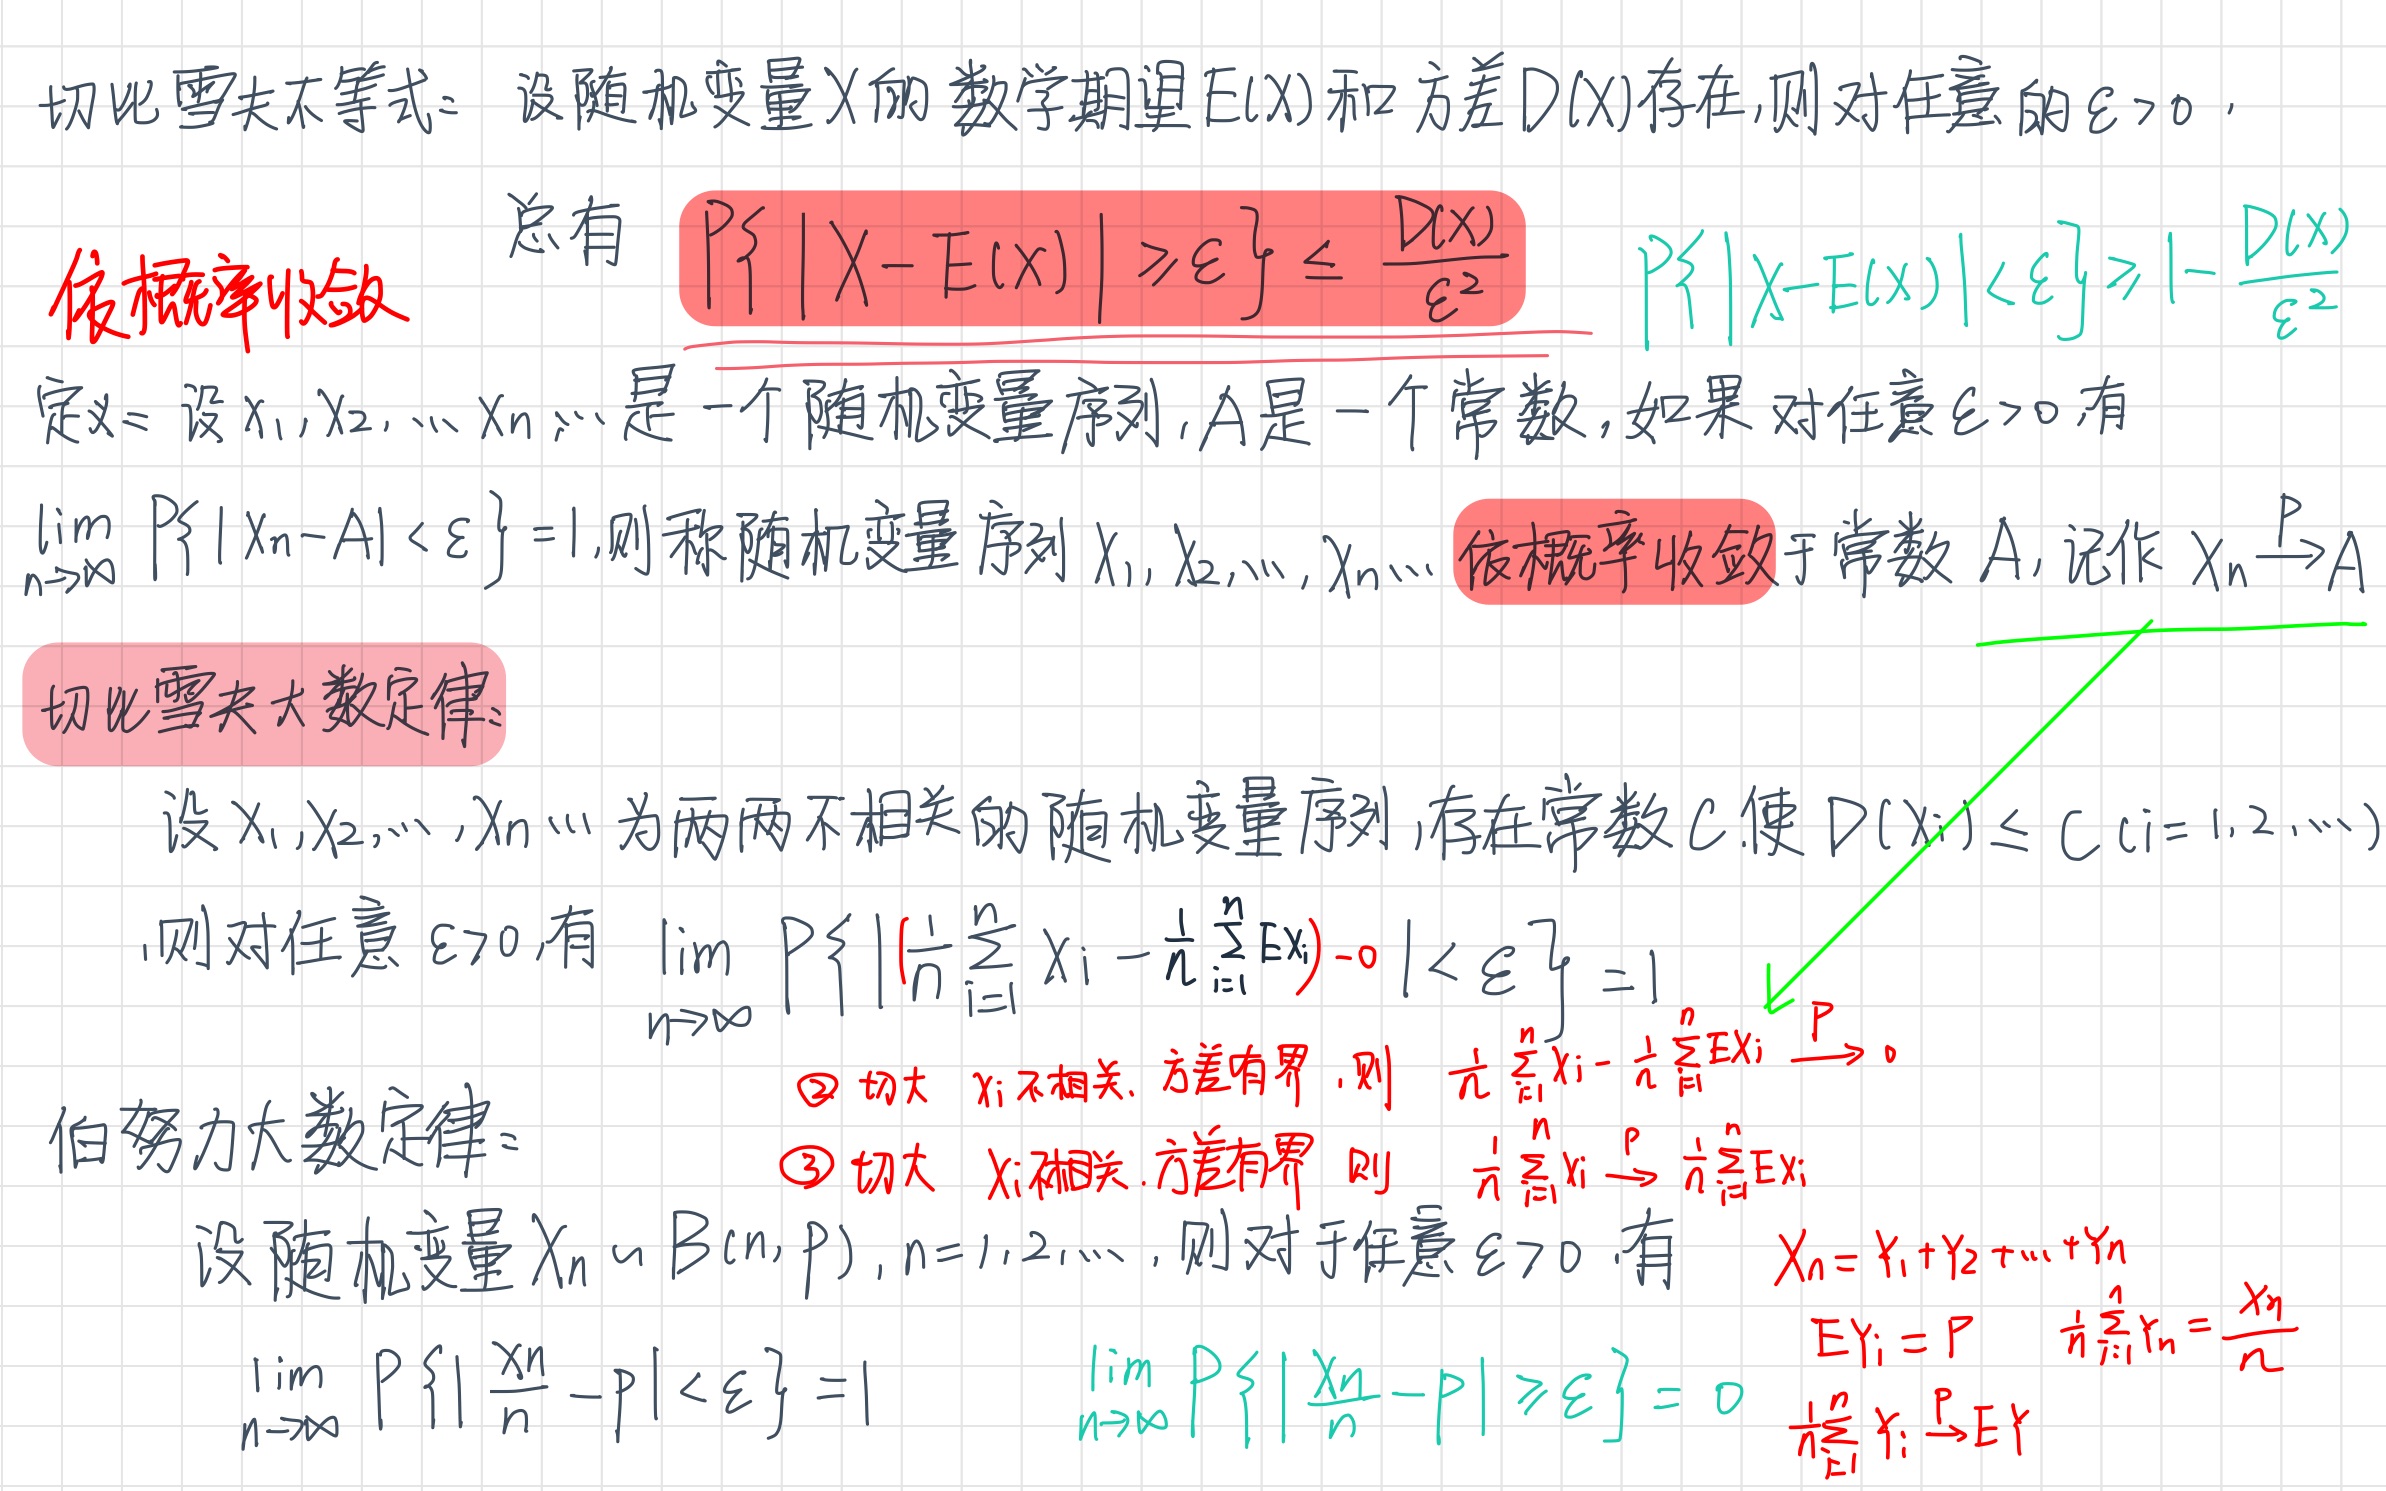 切比雪夫不等式: 设随机变量X的数学期望E(X)和方差D(X)存在,则对任意的ε>0,
总有 P{|X-E(X)|≥ε}≤D(X)/ε² P{|X-E(X)|<ε}≥1-D(X)/ε²
依概率收敛
定义: 设X₁,X₂,…Xn,…是一个随机变量序列,A是一个常数,如果对任意ε>0,有
lim n→∞ P{|Xn-A|<ε}=1,则称随机变量序列X₁,X₂,…,Xn…依概率收敛于常数A,记作Xn P→ A
切比雪夫大数定律:
设X₁,X₂,…,Xn…为两两不相关的随机变量序列,存在常数C,使D(Xi)≤C(i=1,2,…)
,则对任意ε>0,有 lim n→∞ P{|(1/n Σ i=1 n Xi - 1/n Σ i=1 n EXi)-0|<ε}=1
② 切大 Xi不相关、方差有界,则 1/n Σ i=1 n Xi - 1/n Σ i=1 n EXi P→ 0
伯努力大数定律:
③ 切大 Xi不相关.方差有界 则 1/n Σ i=1 n Xi P→ 1/n Σ i=1 n EXi
设随机变量Xn~B(n,p),n=1,2,…,则对于任意ε>0,有
Xn=Y₁+Y₂+…+Yn
EYi=P 1/n Σ i=1 n Yn=Xn/n
lim n→∞ P{|Xn/n-p|<ε}=1 lim n→∞ P{|Xn/n-p|≥ε}=0
1/n Σ i=1 n Yi P→ EY